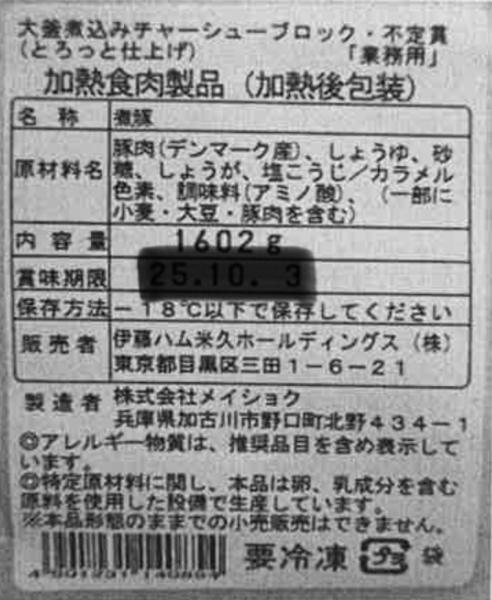 大釜煮込みチャーシューブロック・不定貫
(とろっと仕上げ) 「業務用」
加熱食肉製品 (加熱後包装)
名 称 煮豚
原材料名 豚肉(デンマーク産)、しょうゆ、砂
糖、しょうが、塩こうじ/カラメル
色素、調味料(アミノ酸)、(一部に
小麦・大豆・豚肉を含む)
内 容 量 1602g
賞味期限 25.10. 3
保存方法 -18℃以下で保存してください
販 売 者 伊藤ハム米久ホールディングス(株)
東京都目黒区三田1-6-21
製造者 株式会社メイショク
兵庫県加古川市野口町北野434-1
◎アレルギー物質は、推奨品目を含め表示して
います。
◎特定原材料に関し、本品は卵、乳成分を含む
原料を使用した設備で生産しています。
※本品形態のままでの小売販売はできません。
要冷凍 プラ 袋